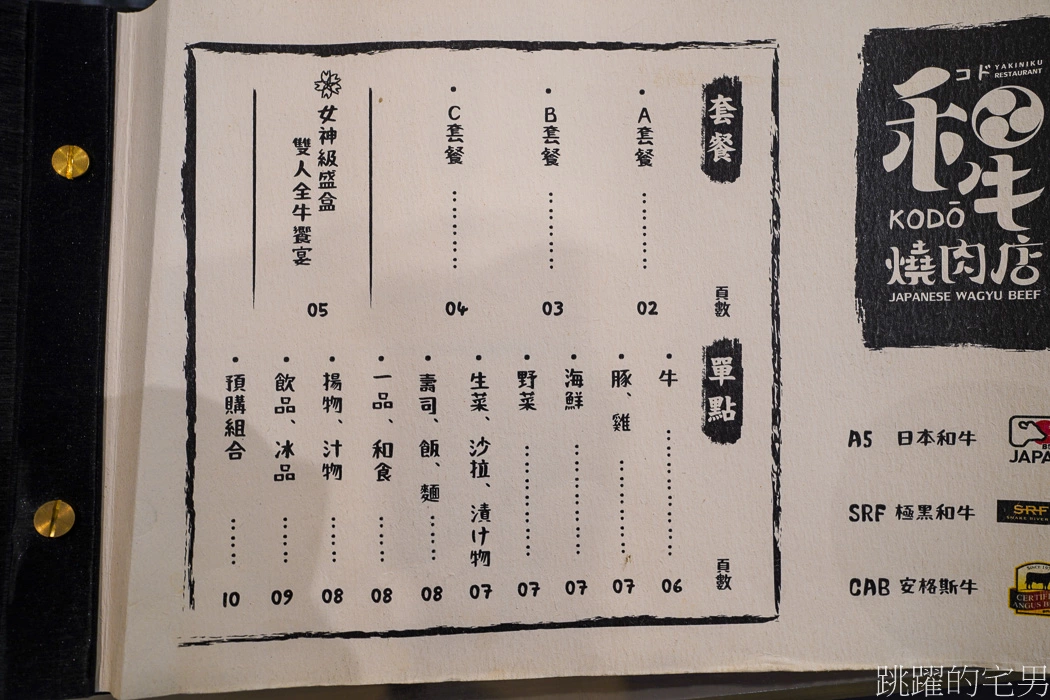 コド YAKINIKU RESTAURANT
和牛
KODŌ
燒肉店
JAPANESE WAGYU BEEF
A5 日本和牛
JAPA
SRF 極黑和牛
SRF
CAB 安格斯牛
CERTIFIE
ANGUS B
套餐 頁數
• A套餐 ········· 02
• B套餐 ········· 03
• C套餐 ········· 04
女神級盛盒
雙人全牛饗宴 05
單點 頁數
• 牛 ············ 06
• 豚、雞 ········· 07
• 海鮮 ·········· 07
• 野菜 ·········· 07
• 生菜、沙拉、漬け物 07
• 壽司、飯、麵 ····· 08
• 一品、和食 ····· 08
• 揚物、汁物 ····· 08
• 飲品、冰品 ····· 09
• 預購組合 ····· 10
跳躍的宅男